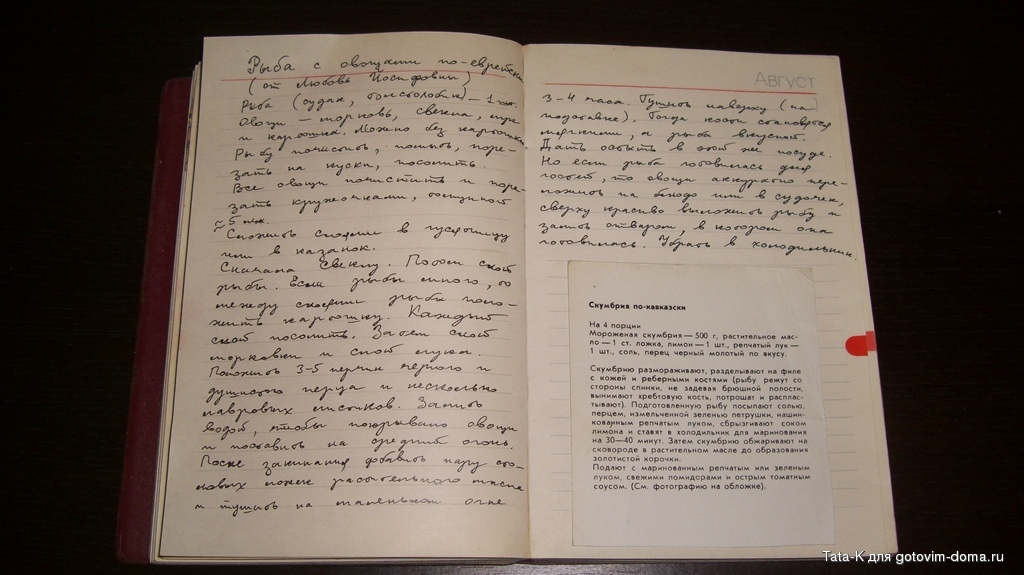 Рыба с овощами по-еврейски
(от Любови Иосифовны)
Рыба (судак, толстолобик) — 1
Овощи — морковь, свекла, лук
и картошка. Можно без картошки.
Рыбу почистить, помыть, поре-
зать на куски, посолить.
Все овощи почистить и поре-
зать кружочками, толщиной
~5 мм.
Сложить слоями в гусятницу
или в казанок.
Сначала свеклу. Потом слой
рыбы. Если рыбы много, то
между слоями рыбы поло-
жить картошку. Каждый
слой посолить. Затем слой
морковки и слой лука.
Положить 3-5 перчин черного и
душистого перца и несколько
лавровых листиков. Залить
водой, чтобы покрывало овощи
и поставить на средний огонь.
После закипания добавить пару сто-
ловых ложек растительного масла
и тушить на маленьком огне
Август
3-4 часа. Тушить наверху (на
подставке). Тогда кости становятся
мягкими, а рыба вкусной.
Дать остыть в этой же посуде.
Но если рыба готовилась для
гостей, то овощи аккуратно пере-
ложить на блюдо или в судочек,
сверху красиво выложить рыбу и
залить отваром, в котором она
готовилась. Убрать в холодильник.
Скумбрия по-кавказски
На 4 порции
Мороженая скумбрия — 500 г, растительное мас-
ло — 1 ст. ложка, лимон — 1 шт., репчатый лук —
1 шт., соль, перец черный молотый по вкусу.
Скумбрию размораживают, разделывают на филе
с кожей и реберными костями (рыбу режут со
стороны спинки, не задевая брюшной полости,
вынимают хребтовую кость, потрошат и распла-
тывают). Подготовленную рыбу посыпают солью,
перцем, измельченной зеленью петрушки, нашин-
кованным репчатым луком, сбрызгивают соком
лимона и ставят в холодильник для маринования
на 30—40 минут. Затем скумбрию обжаривают на
сковороде в растительном масле до образования
золотистой корочки.
Подают с маринованным репчатым или зеленым
луком, свежими помидорами и острым томатным
соусом. (См. фотографию на обложке).
Tata-K для gotovim-doma.ru